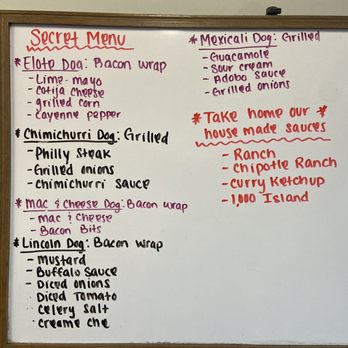 Secret Menu
* Elote Dog: Bacon wrap
- Lime-mayo
- Cotija cheese
- grilled corn
- cayenne pepper
* Chimichurri Dog: Grilled
- Philly Steak
- Grilled onions
- chimichurri sauce
* Mac & Cheese Dog: Bacon wrap
- mac & Cheese
- Bacon Bits
* Lincoln Dog: Bacon wrap
- mustard
- Buffalo sauce
- Diced onions
Diced Tomato
Celery Salt
creame che
* Mexicali Dog: Grilled
- Guacamole
- Sour cream
- Adobo sauce
- Grilled onions
* Take home our *
house made sauces
- Ranch
- Chipotle Ranch
- Curry Ketchup
- 1,000 Island